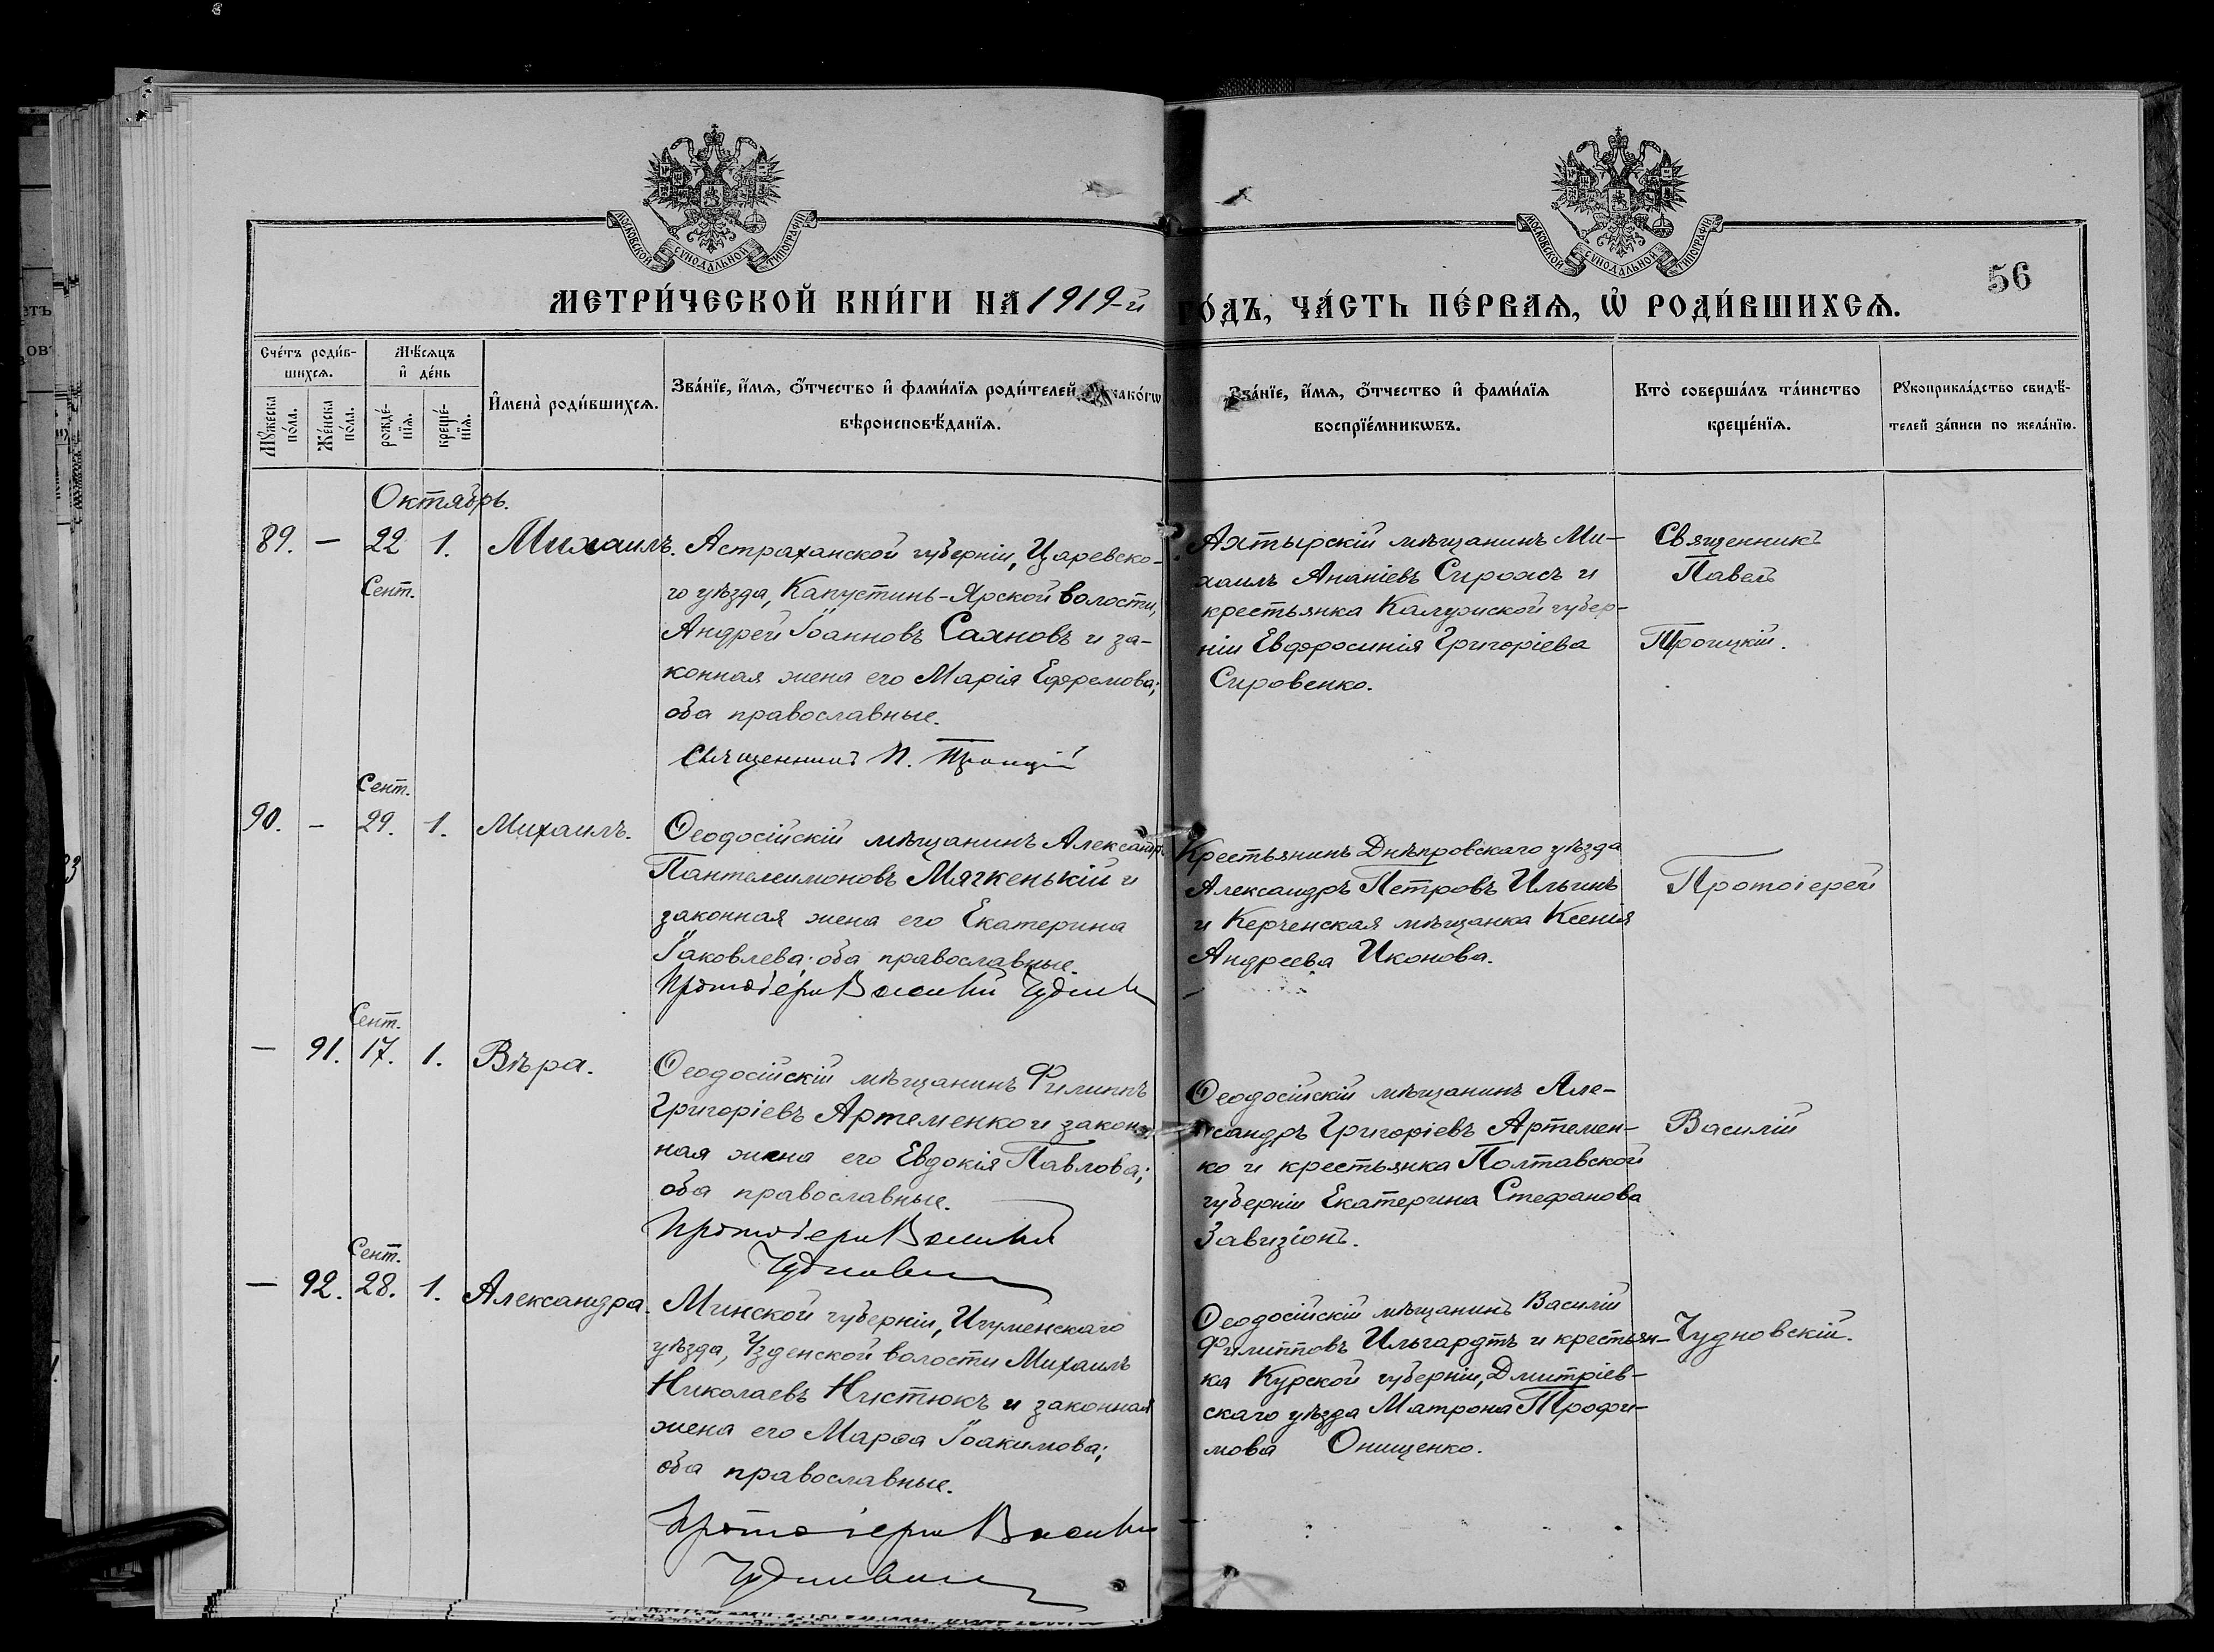 МОСКОВСКОЙ СѴНОДАЛЬНОЙ ТИПОГРАФІИ
МОСКОВСКОЙ СѴНОДАЛЬНОЙ ТИПОГРАФІИ
56
МЕТРИ́ЧЕСКОЙ КНИ́ГИ НА 1919-й ГО́ДЪ, ЧА́СТЬ ПЕ́РВАѦ, Ѡ҆ РОДИ́ВШИХСѦ.
Сче́тъ роди́в-
шихсѧ.
Мѣ́сѧцъ
и҆ де́нь
Мꙋ́жеска
по́ла.
Же́нска
по́ла.
рожде́-
нїѧ.
креще́-
нїѧ.
И҆мена̀ роди́вшихсѧ.
Зва́нїе, и҆́мѧ, ѻ҆́тчество и҆ фами́лїѧ роди́телей, како́гѡ
вѣроисповѣ́данїѧ.
Зва́нїе, и҆́мѧ, ѻ҆́тчество и҆ фами́лїѧ
воспрїе́мникѡвъ.
Кто̀ соверша́лъ та́инство
креще́нїѧ.
Рꙋкоприкла́дство свидѣ́-
телей за́писи по жела́нїю.
Октябрь.
89. — 22 1. Михаилъ.
Сент.
Астраханской губерніи, Царевско-
го уѣзда, Капустинъ-Ярской волости,
Андрей Іоанновъ Сахновъ и за-
конная жена его Марія Ефремова;
оба православные.
Священникъ П. Троицкій
Ахтырскій мѣщанинъ Ми-
хаилъ Ананіевъ Сирожъ и
крестьянка Калужской губер-
ніи Евфросинія Григоріева
Сировенко.
Священникъ
Павелъ
Троицкій.
Сент.
90. — 29. 1. Михаилъ.
Ѳеодосійскій мѣщанинъ Александръ
Пантелеимоновъ Мягкенькій и
законная жена его Екатерина
Іаковлева; оба православные.
Протоіерей Василій Чудновскій
Крестьянинъ Днѣпровскаго уѣзда
Александръ Петровъ Ильинъ
и Керченская мѣщанка Ксенія
Андреева Иконова.
Протоіерей
Сент.
— 91. 17. 1. Вѣра.
Ѳеодосійскій мѣщанинъ Филиппъ
Григоріевъ Артеменко и закон-
ная жена его Евдокія Павлова;
оба православные.
Протоіерей Василій
Чудновскій
Ѳеодосійскій мѣщанинъ Але-
ксандръ Григоріевъ Артемен-
ко и крестьянка Полтавской
губерніи Екатерина Стефанова
Завизіонъ.
Василій
Сент.
— 92. 28. 1. Александра.
Минской губерніи, Игуменскаго
уѣзда, Узденской волости Михаилъ
Николаевъ Нистюкъ и законная
жена его Марѳа Іоакимова;
оба православные.
Протоіерей Василій
Чудновскій
Ѳеодосійскій мѣщанинъ Василій
Филипповъ Ильгардтъ и крестьян-
ка Курской губерніи, Дмитріев-
скаго уѣзда Матрона Трофи-
мова Онищенко.
Чудновскій.